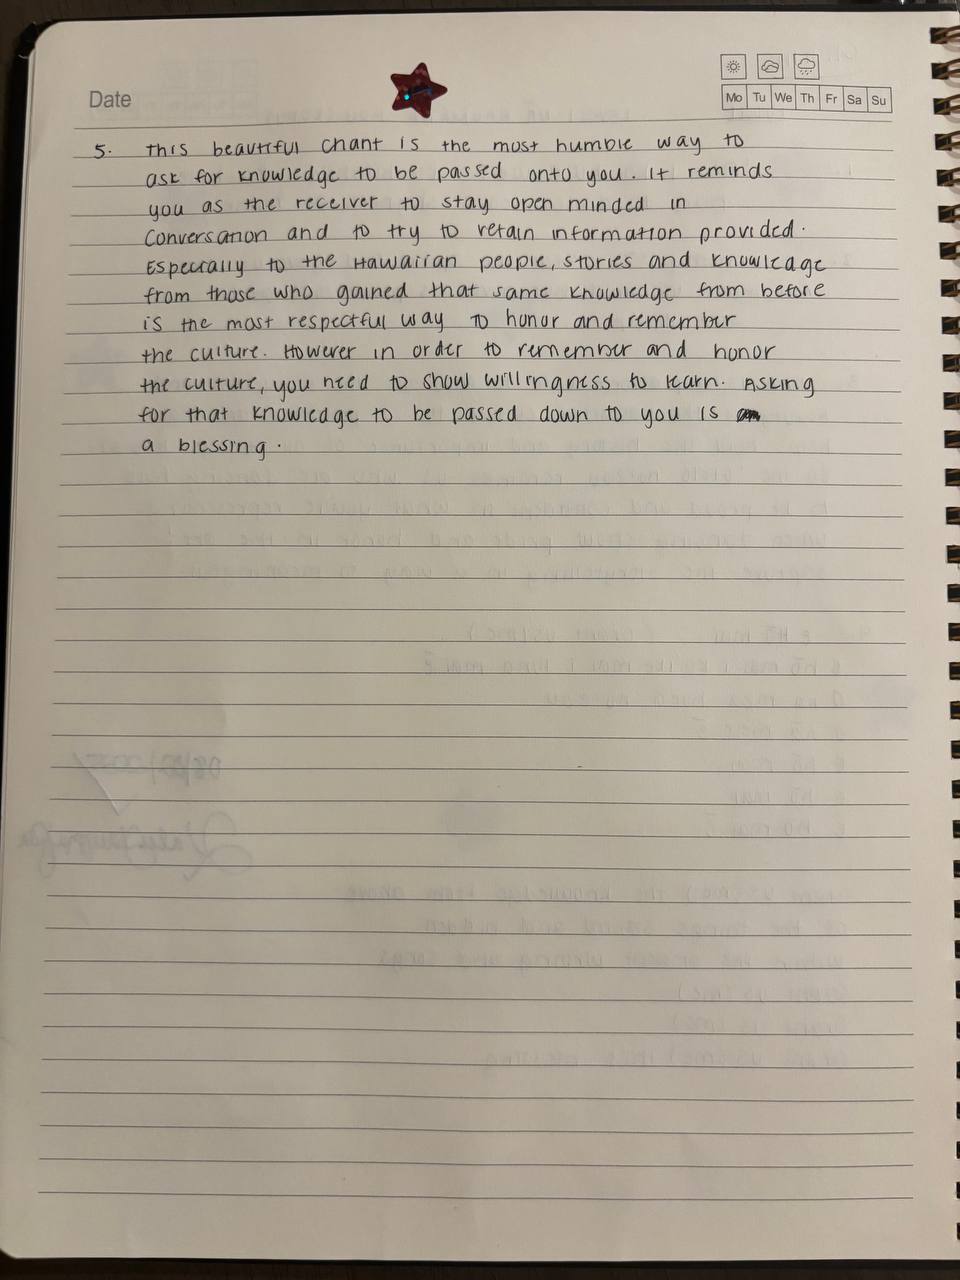 Date
Mo Tu We Th Fr Sa Su
5. This beautiful chant is the most humble way to
ask for knowledge to be passed onto you. It reminds
you as the receiver to stay open minded in
conversation and to try to retain information provided.
Especially to the Hawaiian people, stories and knowledge
from those who gained that same knowledge from before
is the most respectful way to honor and remember
the culture. However in order to remember and honor
the culture, you need to show willingness to learn. Asking
for that knowledge to be passed down to you is
a blessing.